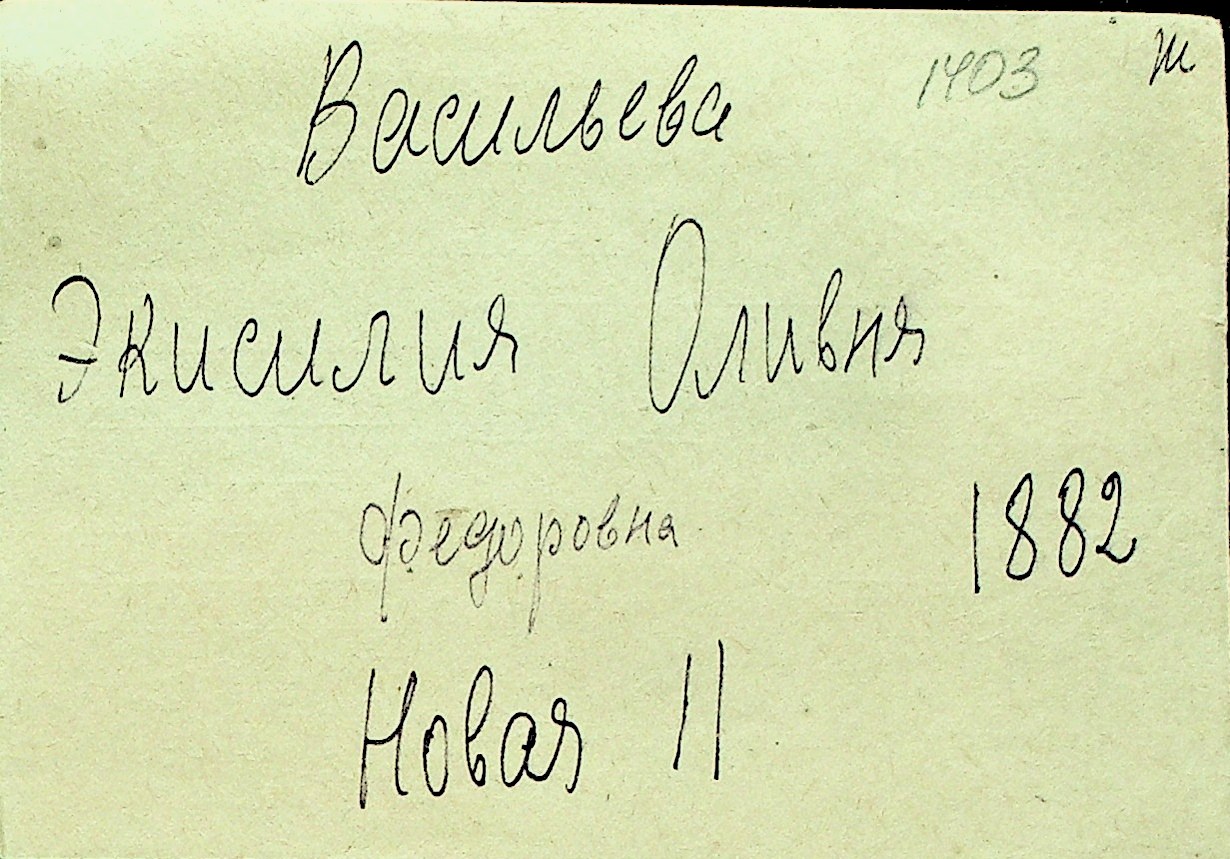 1403 ж
Васильева
Экисилия Оливня
Федоровна 1882
Новая 11